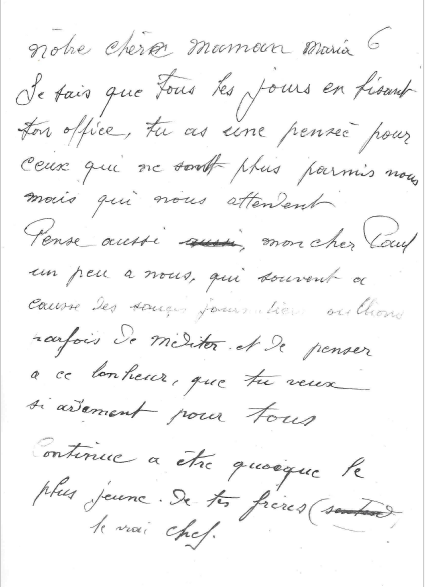 nôtre chère maman maria 6
Je sais que tous les jours en lisant
ton office, tu as une pensée pour
ceux qui ne sont plus parmis nous
mais qui nous attendent
Pense aussi aussi, mon cher Paul
un peu a nous, qui souvent a
causse des soucis journaliers oublions
parfois de méditer et de penser
a ce bonheur, que tu veux
si ardement pour tous
Continue a être quoique le
plus jeune de tes frères (
le vrai chef.